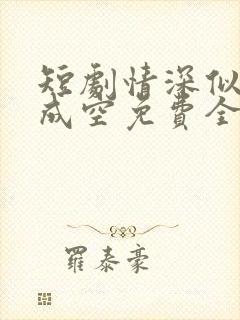 短劇情深似
成空免費全
羅泰豪